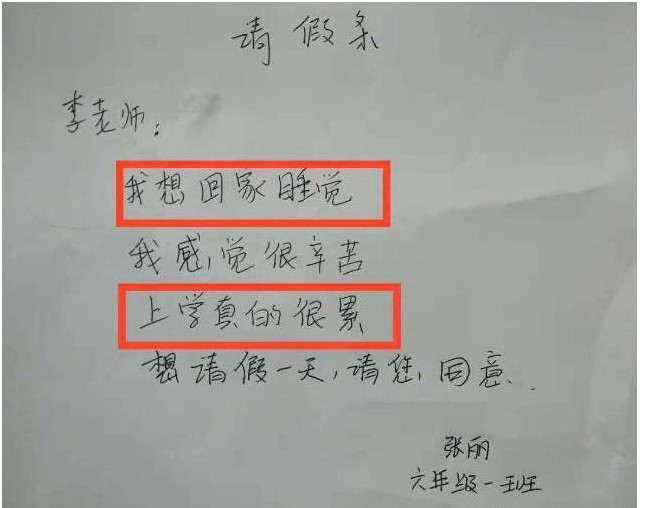 请假条
李老师:
我想回家睡觉
我感觉很辛苦
上学真的很累
想请假一天,请您同意.
张丽
六年级一班